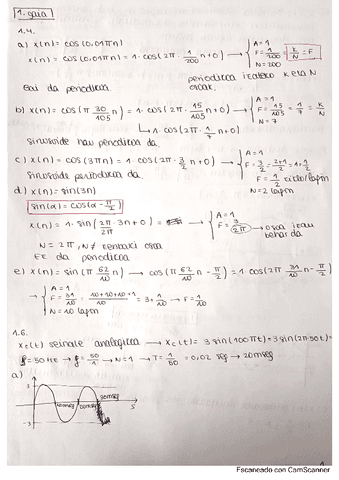 1. gaia
1.4.
a) x(n) = cos(0.01πn)
x(n) = cos(0.01πn) = 1·cos(2π·1/200 n+0) → { A=1 F=1/200 = k/N = F N=200
Bai da periodikoa periodikoa izateko k eta N osoak.
b) x(n) = cos(π 30/105 n) = 1·cos(2π·15/105 n+0) → { A=1 F=15/105=1/7=k/N N=7
↳ 1·cos(2π·1/7 n+0)
sinusoide hau periodikoa da.
c) x(n) = cos(3πn) = 1·cos(2π·3/2 n+0) → { A=1 F=3/2=2+1/2=1+1/2 F=1/2 ziklo/lagin N=2 lagin
sinusoide periodikoa da.
d) x(n) = sin(3n)
sin(α) = cos(α-π/2)
x(n) = 1·sin(2π/2π 3n+0) = → { A=1 F=3/2π → osoa izan behar da
N=2π, N≠ zenbaki osoa
EZ da periodikoa
e) x(n) = sin(π 62/10 n) → cos(π 62/10 n-π/2) = 1·cos(2π 31/10 n-π/2)
→ { A=1 F=31/10=10+10+10+1/10=3+1/10 → F=1/10 N=10 lagin
1.6.
xc(t) seinale analogikoa → xc(t) = 3 sin(100πt) = 3 sin(2π·50t) =
f=50 Hz → f=50/1 → N=1 → T=1/50=0,02 seg → 20mseg
a)
3
-3
10mseg
20mseg
30mseg
s
Escaneado con CamScanner